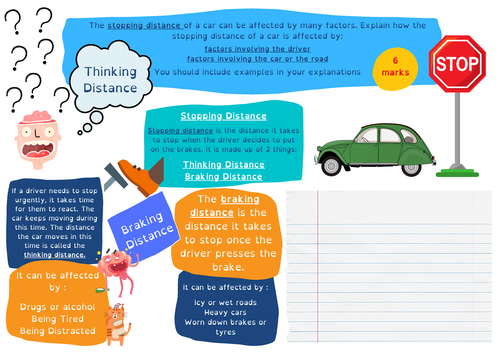 The stopping distance of a car can be affected by many factors. Explain how the
stopping distance of a car is affected by:
factors involving the driver
factors involving the car or the road
You should include examples in your explanations
6
marks
STOP
Thinking
Distance
Stopping Distance
Stopping distance is the distance it takes
to stop when the driver decides to put
on the brakes. It is made up of 2 things:
Thinking Distance
Braking Distance
If a driver needs to stop
urgently, it takes time
for them to react. The
car keeps moving during
this time. The distance
the car moves in this
time is called the
thinking distance.
Braking
Distance
The braking
distance is the
distance it takes
to stop once the
driver presses the
brake.
It can be affected
by :
Drugs or alcohol
Being Tired
Being Distracted
It can be affected by :
Icy or wet roads
Heavy cars
Worn down brakes or
tyres